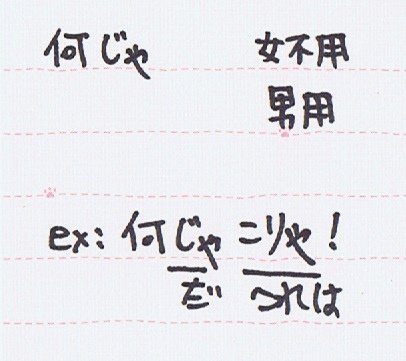 何じゃ 女不用
男用
ex: 何じゃ こりゃ!
だ これは